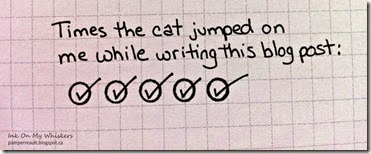 Times the cat jumped on
me while writing this blog post:
Ink On My Whiskers
pamperreault.blogspot.ca